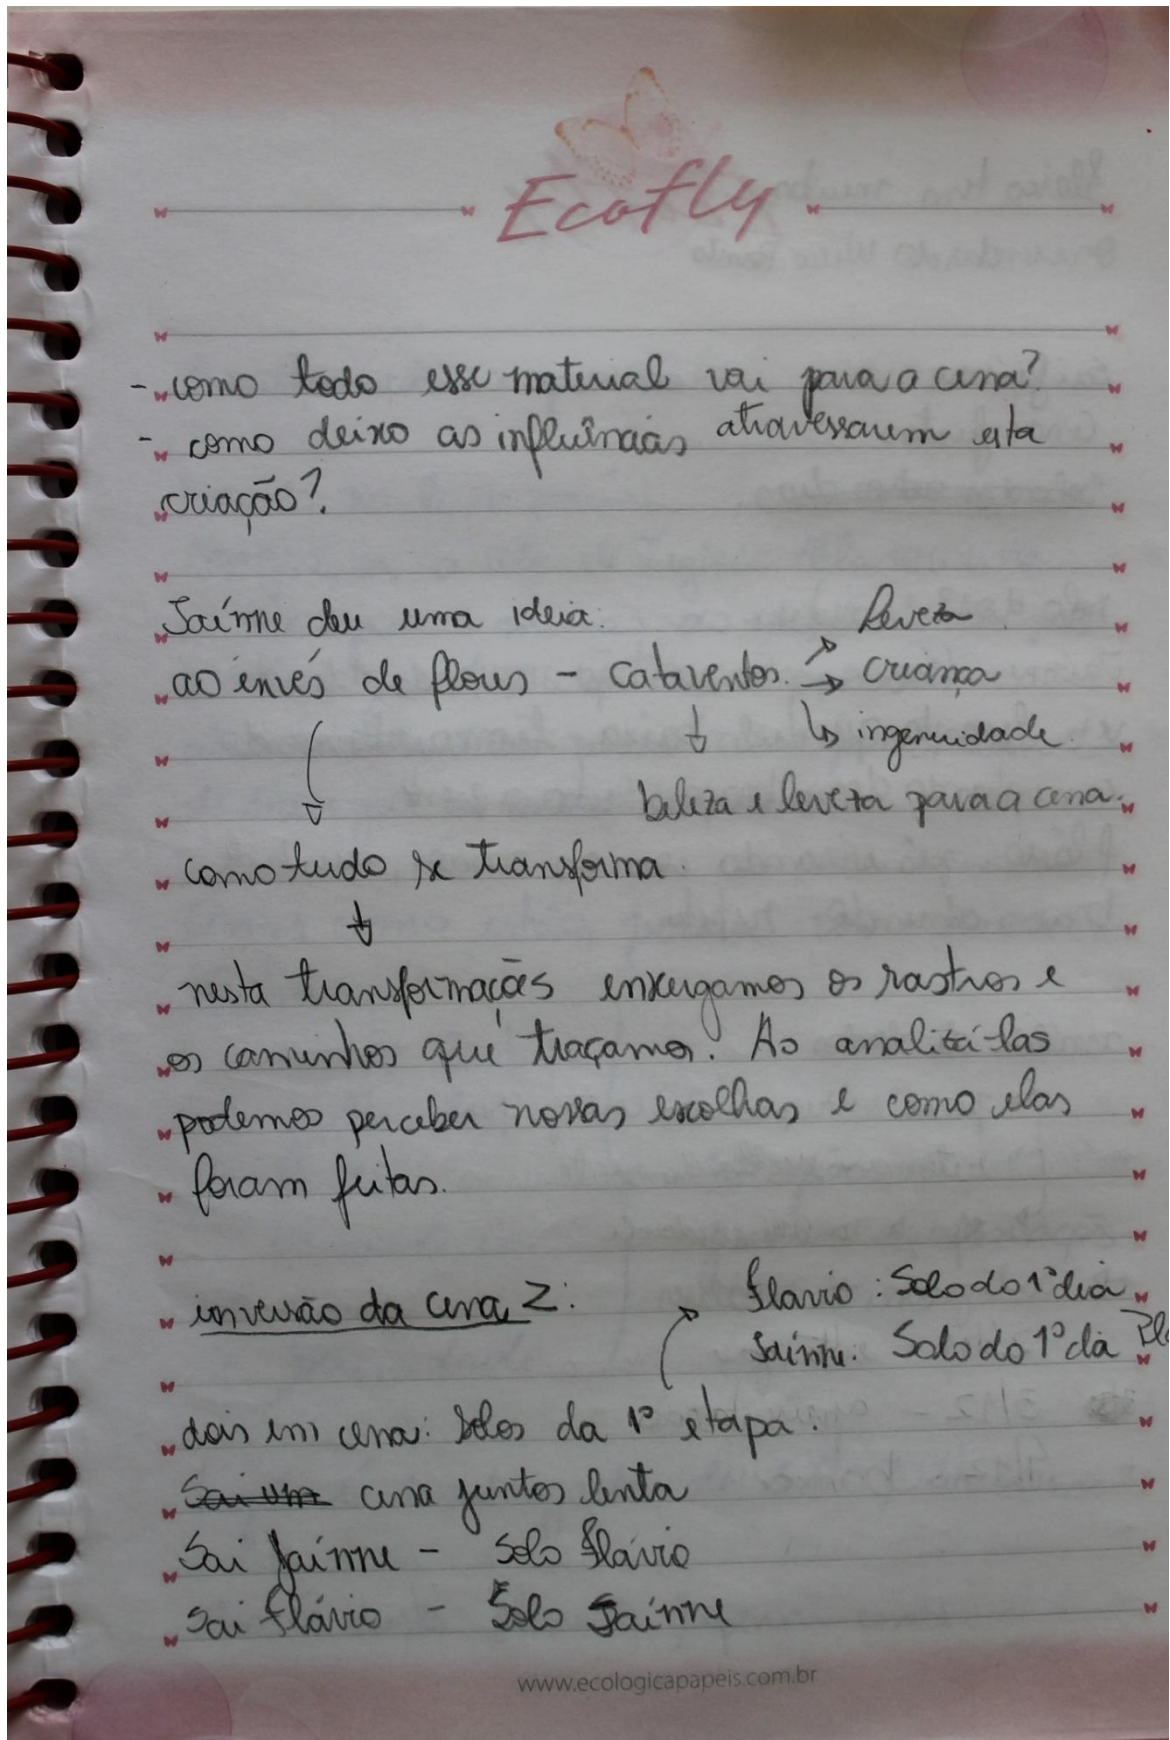 Ecofly
- como todo esse material vai para a cena?
- como deixo as influências atravessarem esta
criação?
Jaínne deu uma ideia:
leveza
ao invés de flores - cataventos. → criança
↳ ingenuidade.
beleza e leveza para a cena.
como tudo se transforma.
nesta transformações enxergamos os rastros e
os caminhos que traçamos. Ao analizá-las
podemos perceber nossas escolhas e como elas
foram feitas.
inversão da cena 2:
Flavio: Solo do 1º dia
Jaínne: Solo do 1º da
dois em cena: Solos da 1º etapa.
Sai um cena juntos lenta
Sai Jaínne - Solo Flávio
Sai Flávio - Solo Jaínne
www.ecologicapapeis.com.br